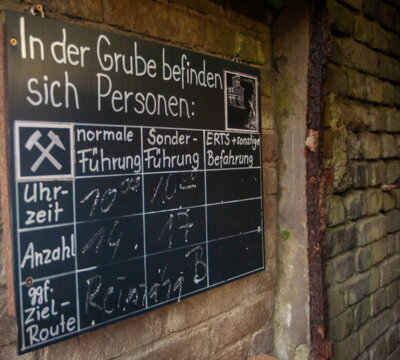 In der Grube befinden
sich Personen:
normale Führung
Sonder-Führung
ERTS + sonstige Befahrung
Uhr-zeit 10 10
Anzahl 14 17
ggf. Ziel-Route